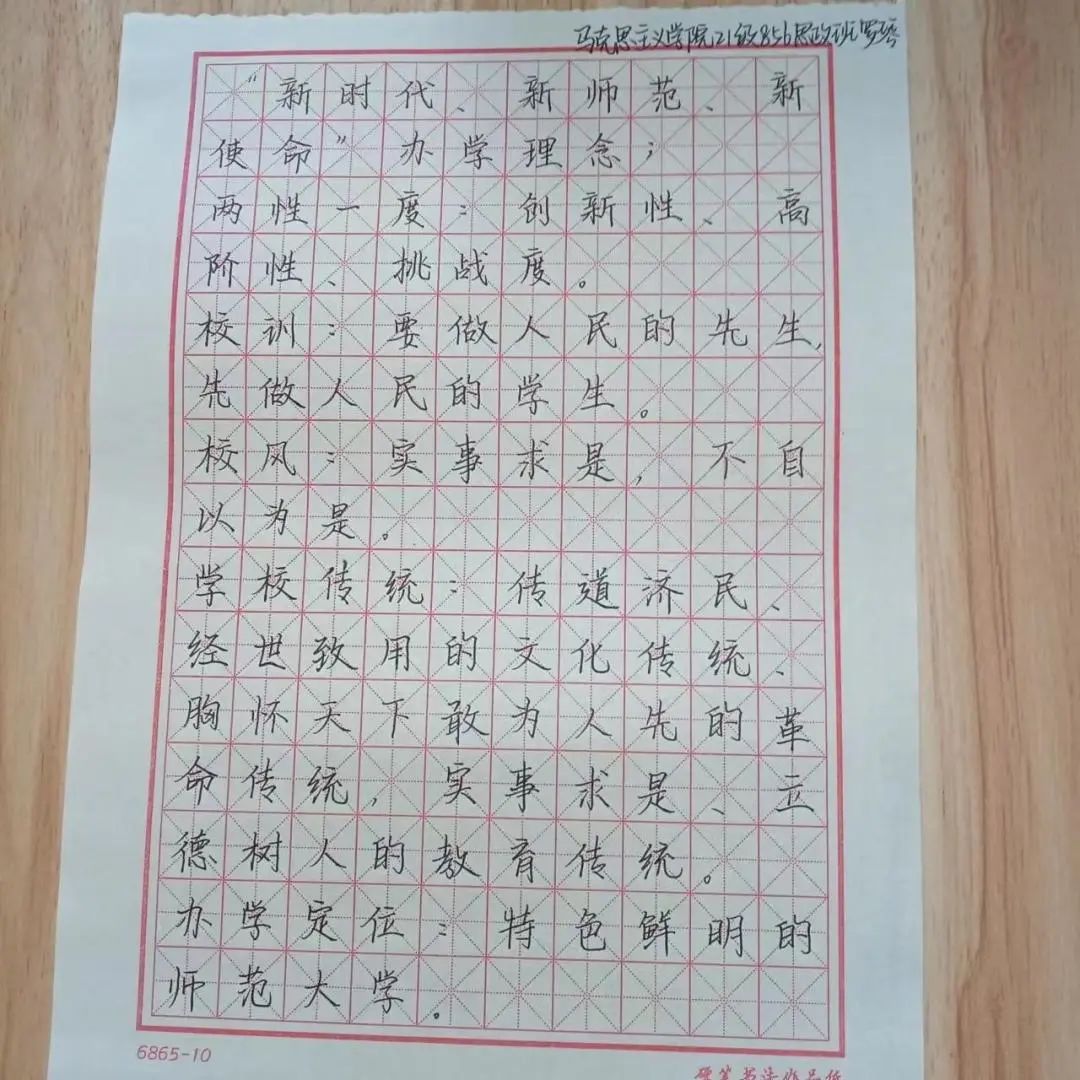 马克思主义学院21级856思政班罗琴
“新时代、新师范、新
使命”办学理念；
两性一度：创新性、高
阶性、挑战度。
校训：要做人民的先生，
先做人民的学生。
校风：实事求是，不自
以为是。
学校传统：传道济民、
经世致用的文化传统、
胸怀天下敢为人先的革
命传统，实事求是、立
德树人的教育传统。
办学定位：特色鲜明的
师范大学。
6865-10
硬笔书法作品纸